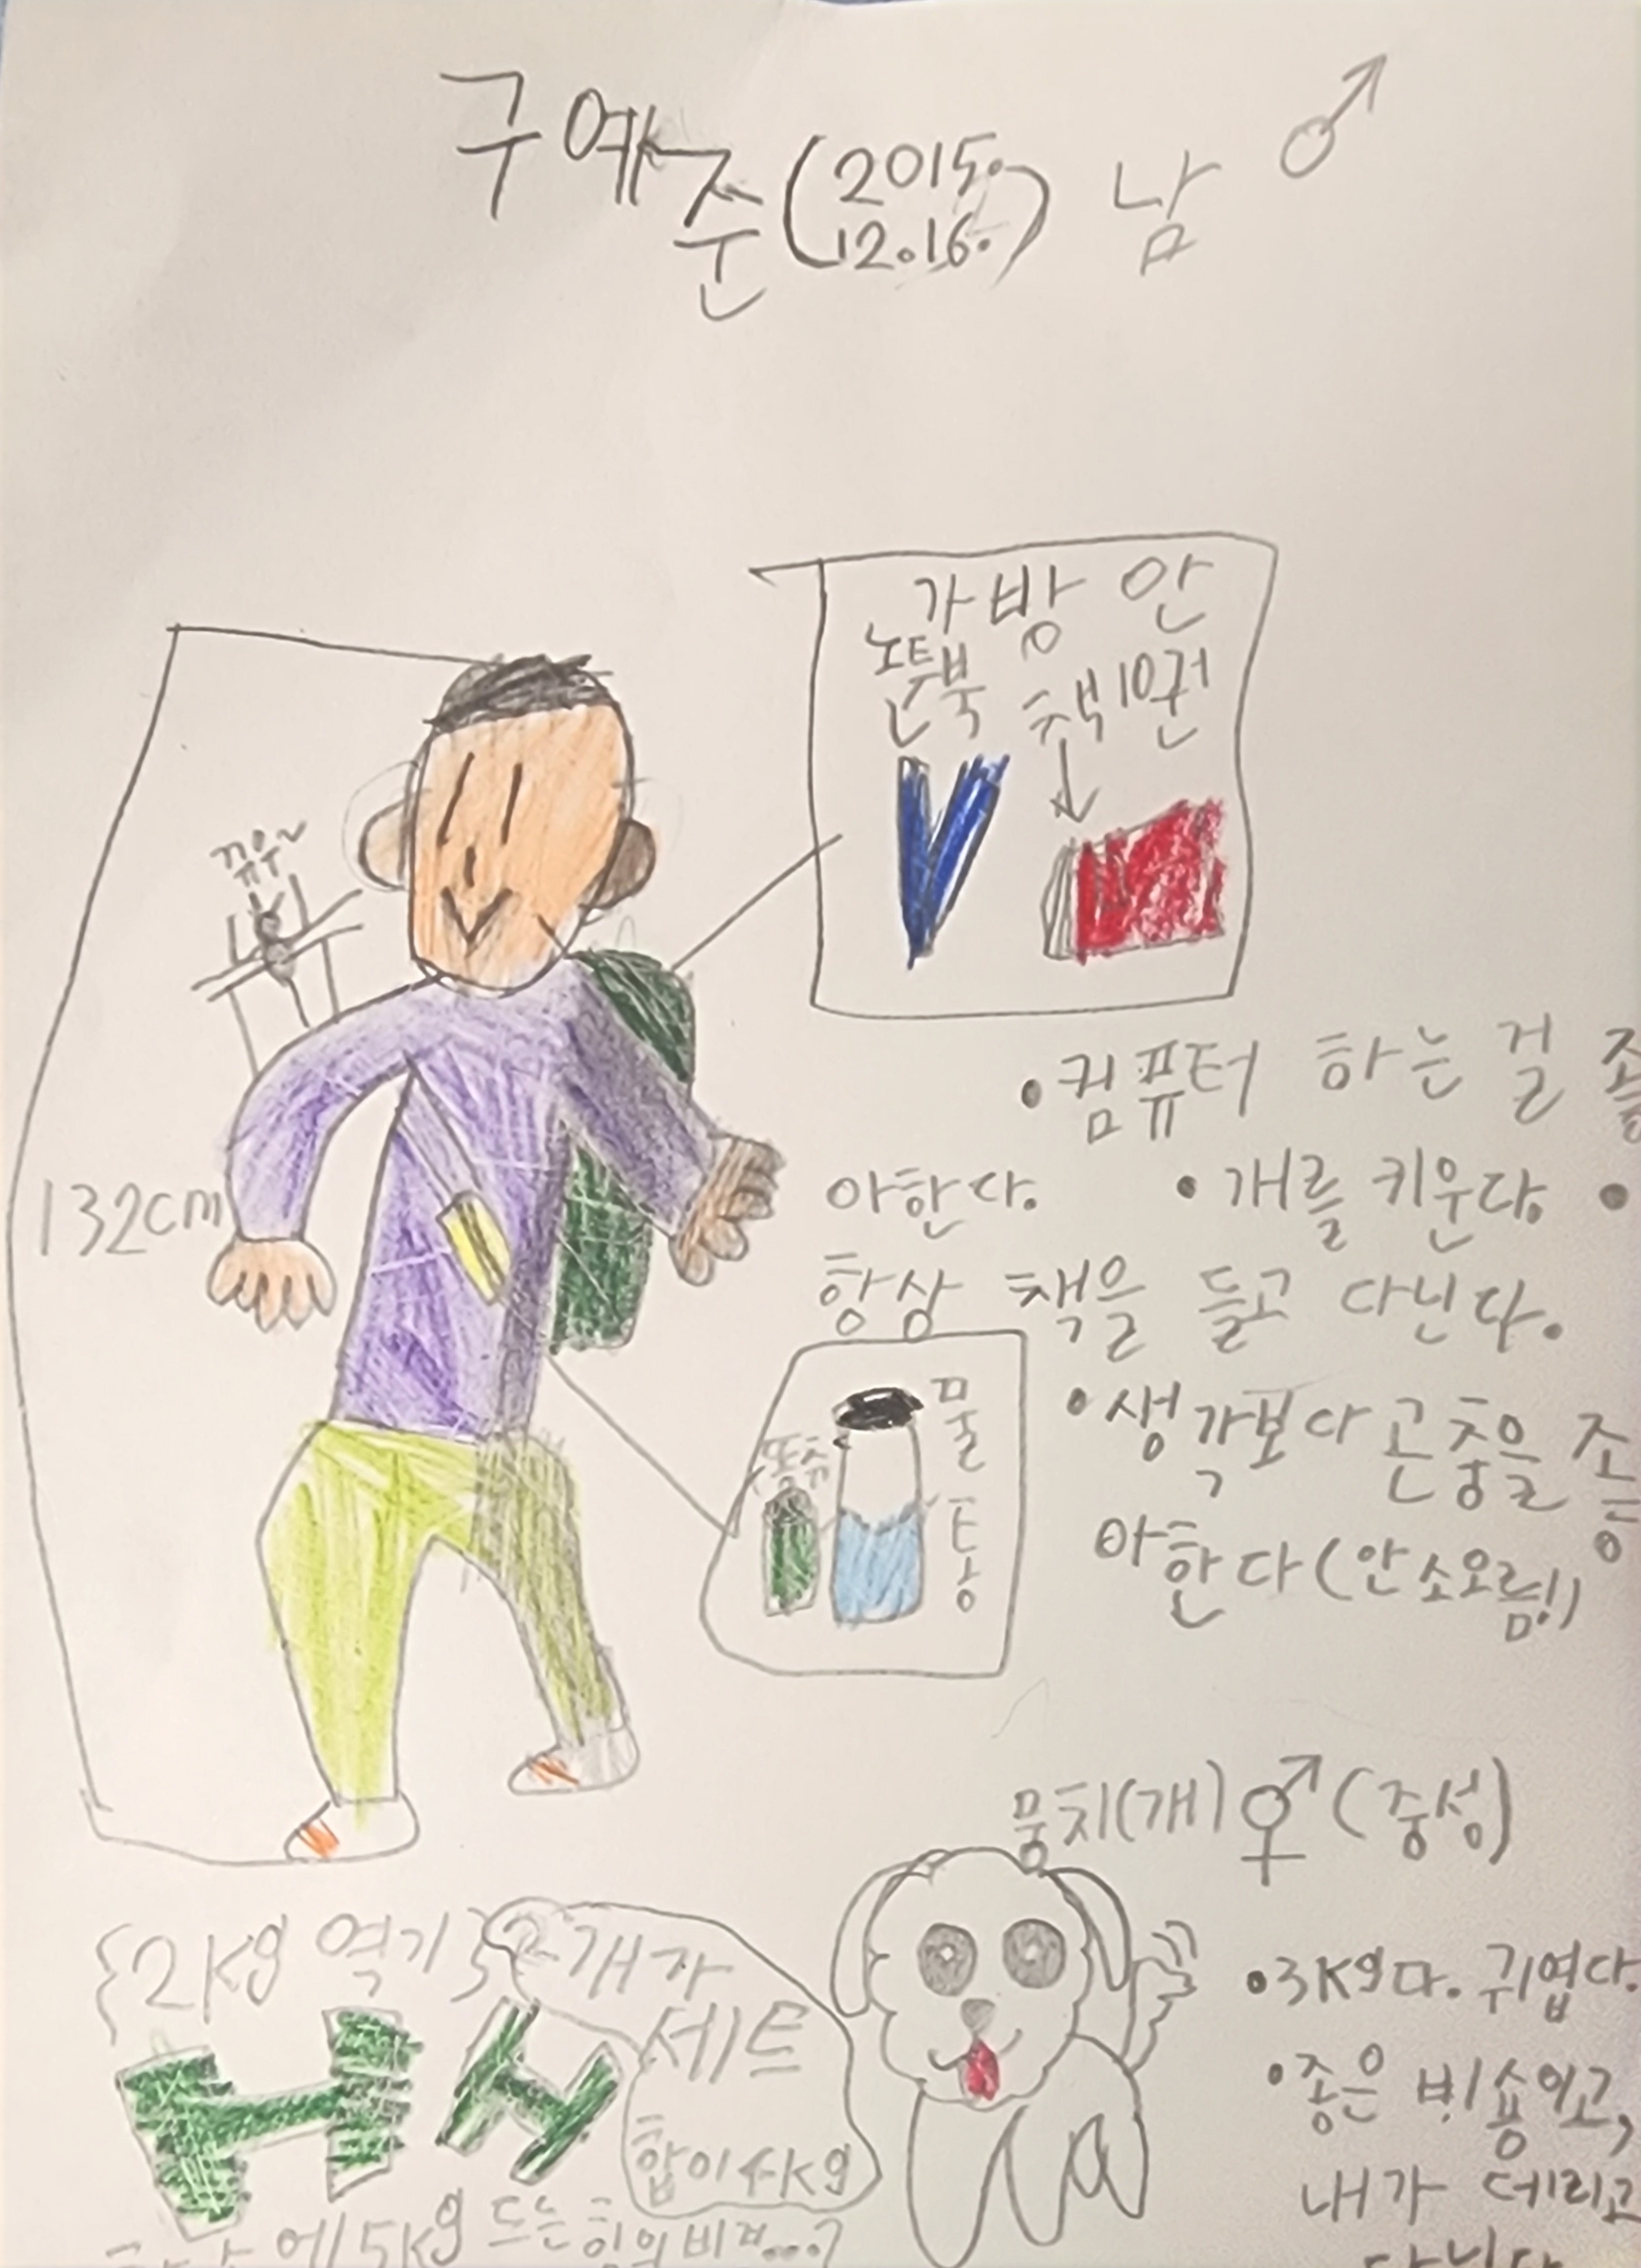 구예준(2015.12.16.) 남 ♂
가방 안
노트북 책 10권
뀨우~
132cm
•컴퓨터 하는 걸 좋
아한다. •개를 키운다. •
항상 책을 들고 다닌다.
•생각보다 곤충을 좋
아한다(안 소오름!)
물통
뭉치(개) (중성)
{2kg 역기} 2개가
세트
합이 4kg
•3kg다. 귀엽다.
•좋은 비숑이고,
내가 데리고
다닌다
에 5kg 드는 힘의 비결...?